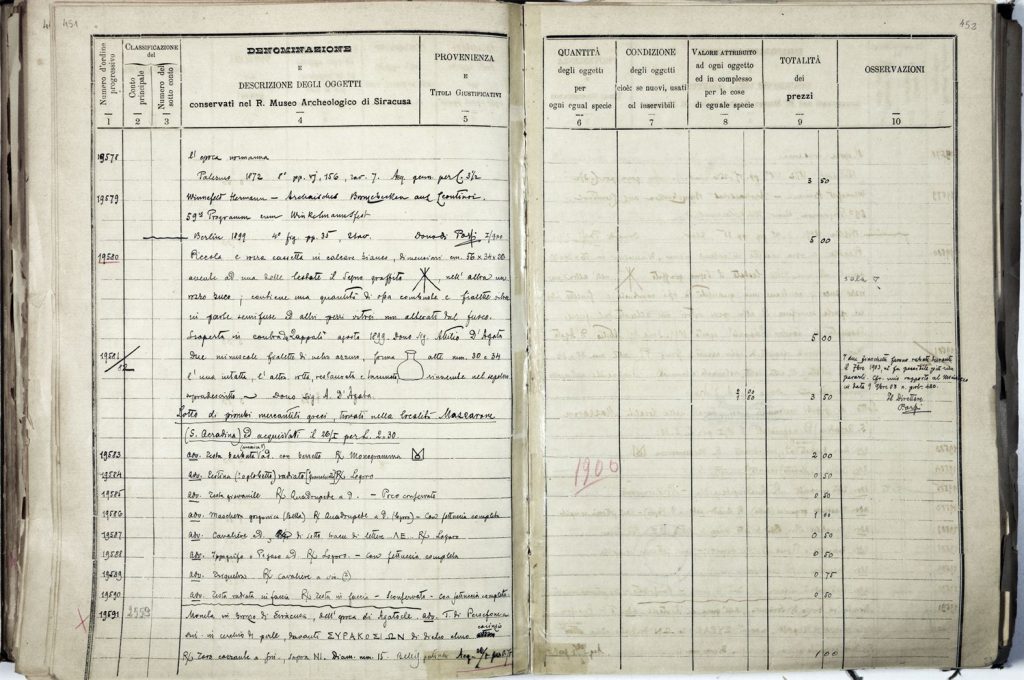 451
Numero d'ordine progressivo
Classificazione del
Conto principale
Numero del sotto conto
DENOMINAZIONE
E
DESCRIZIONE DEGLI OGGETTI
conservati nel R. Museo Archeologico di Siracusa
PROVENIENZA
E
Titoli Giustificativi
1 2 3 4 5
19578 l'epoca normanna
Palermo, 1872 8° pp. vj, 156, tav. 7. Acq. per £ 3½
19579 Winnefelt Hermann – Archaisches Bronzebecken aus Leontinoi.
59tes Programm zum Winkelmannsfest
Berlin 1899 4° fig. pp. 35, 2 tav. Dono di 1/900
19580 Piccola e rozza cassetta in calcare bianco, dimensioni cm. 56 x 34 x 26
avente ad una delle testate il segno graffito nell'altra un
rozzo ; contiene una quantità di ossa combuste e fialette vitree
in parte semifuse ed altri pezzi vitrei alterati dal fuoco.
Scoperta in contrada Zappalà agosto 1899. Dono Sig. Attilio D'Agata
19581/82 Due minuscole fialette di vetro azzurro, forma alte mm. 30 e 34
l'una intatta, l'altra rotta, restaurata e rinvenute nel sepolcro
sopradescritto. Dono Sig. A. D'Agata
Lotto di piombi mercantili greci, trovati nella località Mazzarone
(S. Acradina) ed acquistati il 20/I per L. 2.30
19583 adv. Testa barbata ad. con berretto R/ Monogramma
19584 adv. Testina radiata R/ Logoro
19585 adv. Testa giovanile R/ Quadrupede a d. – Poco conservato
19586 adv. Maschera gorgonica (bella) R/ Quadrupede a d. (logoro) – con fettuccia completa
19587 adv. Cavaliere a d. di sotto tracce di lettere ΛΕ. R/ Logoro
19588 adv. Ippogrifo o Pegaso a d. R/ Logoro – con fettuccia completa
19589 adv. R/ Cavaliere a sin. (?)
19590 adv. Testa radiata in faccia R/ Testa in faccia – con fettuccia completa
19591 2559 Moneta in bronzo di Siracusa, dell'epoca di Agatocle. adv. T. di Persefone
sin. in cerchio di perle, davanti ΣΥΡΑΚΟΣΙΩΝ di dietro elmo corinzio
R/ Toro cozzante a sin., sopra NI. Diam. mm. 15. Acq.
452
QUANTITÀ
degli oggetti
per
ogni egual specie
CONDIZIONE
degli oggetti
cioè: se nuovi, usati
od inservibili
Valore attribuito
ad ogni oggetto
ed in complesso
per le cose
di eguale specie
TOTALITÀ
dei
prezzi
OSSERVAZIONI
6 7 8 9 10
3 50
5 00
Sala
5 00
I due fiaschetti furono
il 7bre 1903, nè fu possibile più
pararli. Cfr. mio rapporto al Ministero
in data 9 7bre 03 n. prot. 480.
Il Direttore
2 00
1 50
3 50
2 00
1900
0 50
0 50
1 00
0 50
0 50
0 75
0 50
1 00